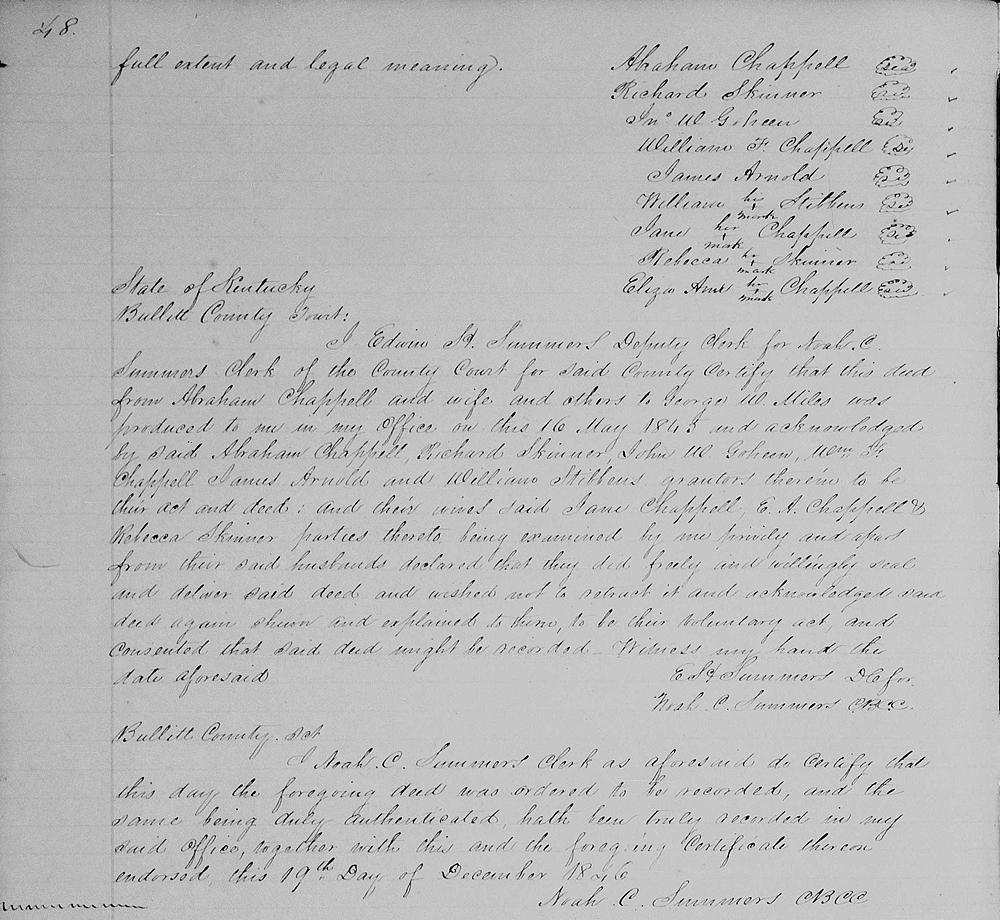 48.
full extent and legal meaning.
Abraham Chappell
Richard Skinner
Jno W Goheen
William F. Chappell
James Arnold
William his mark Stibbens
Jane her mark Chappell
Rebecca her mark Skinner
Eliza Ann her mark Chappell
State of Kentucky
Bullitt County Court:
I Edwin H. Summers Deputy Clerk for Noah. C.
Summers Clerk of the County Court for said County Certify that this deed
from Abraham Chappell and wife and others to George W. Miles was
produced to me in my Office on this 16 May 1845 and acknowledged
by said Abraham Chappell, Richard Skinner, John W Goheen, Wm. F.
Chappell James Arnold and William Stibbens grantors therein to be
their act and deed: and their wives said Jane Chappell, E. A. Chappell &
Rebecca Skinner parties thereto being examined by me privily and apart
from their said husbands declared that they did freely and willingly seal
and deliver said deed and wished not to retract it and acknowledged said
deed again shewn and explained to them, to be their voluntary act, and
consented that said deed might be recorded - Witness my hand the
date aforesaid
E H Summers DC for
Noah C. Summers CBCC.
Bullitt County. Sct
I Noah. C. Summers Clerk as aforesaid do Certify that
this day the foregoing deed was ordered to be recorded, and the
same being duly authenticated, hath been truly recorded in my
said Office, together with this and the foregoing Certificate thereon
endorsed, this 19th Day of December 1846
Noah C. Summers CBCC